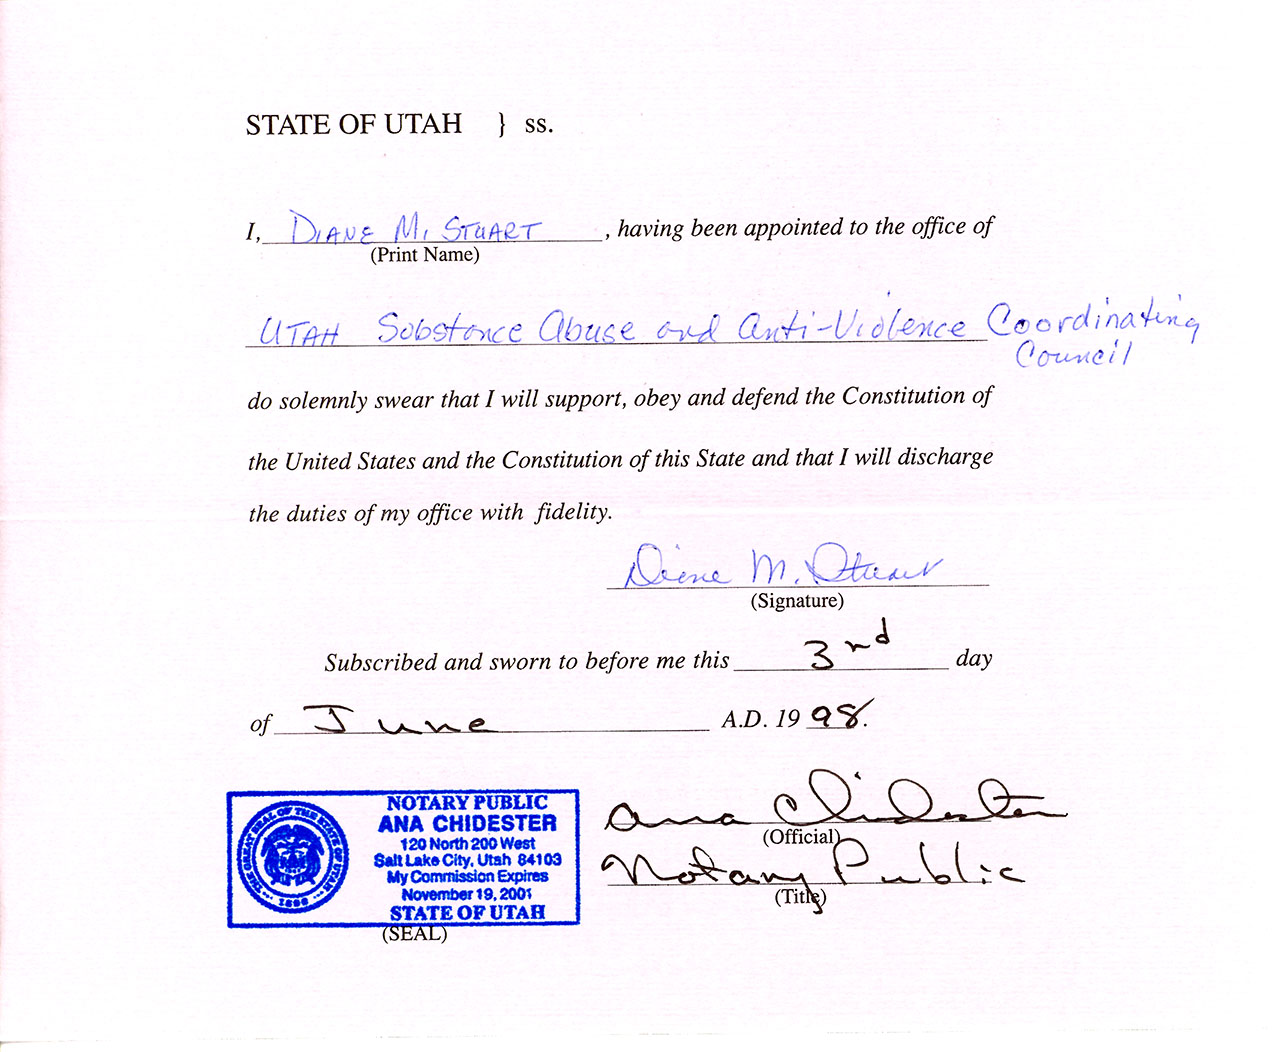 STATE OF UTAH } ss.
I, DIANE M. STUART , having been appointed to the office of
(Print Name)
UTAH Substance Abuse and Anti-Violence Coordinating
Council
do solemnly swear that I will support, obey and defend the Constitution of
the United States and the Constitution of this State and that I will discharge
the duties of my office with fidelity.
Diane M. Stuart
(Signature)
Subscribed and sworn to before me this 3nd day
of June A.D. 19 98.
Ana Chidester
(Official)
Notary Public
(Title)
NOTARY PUBLIC
ANA CHIDESTER
120 North 200 West
Salt Lake City, Utah 84103
My Commission Expires
November 19, 2001
STATE OF UTAH
THE GREAT SEAL OF THE STATE OF UTAH
1896
(SEAL)